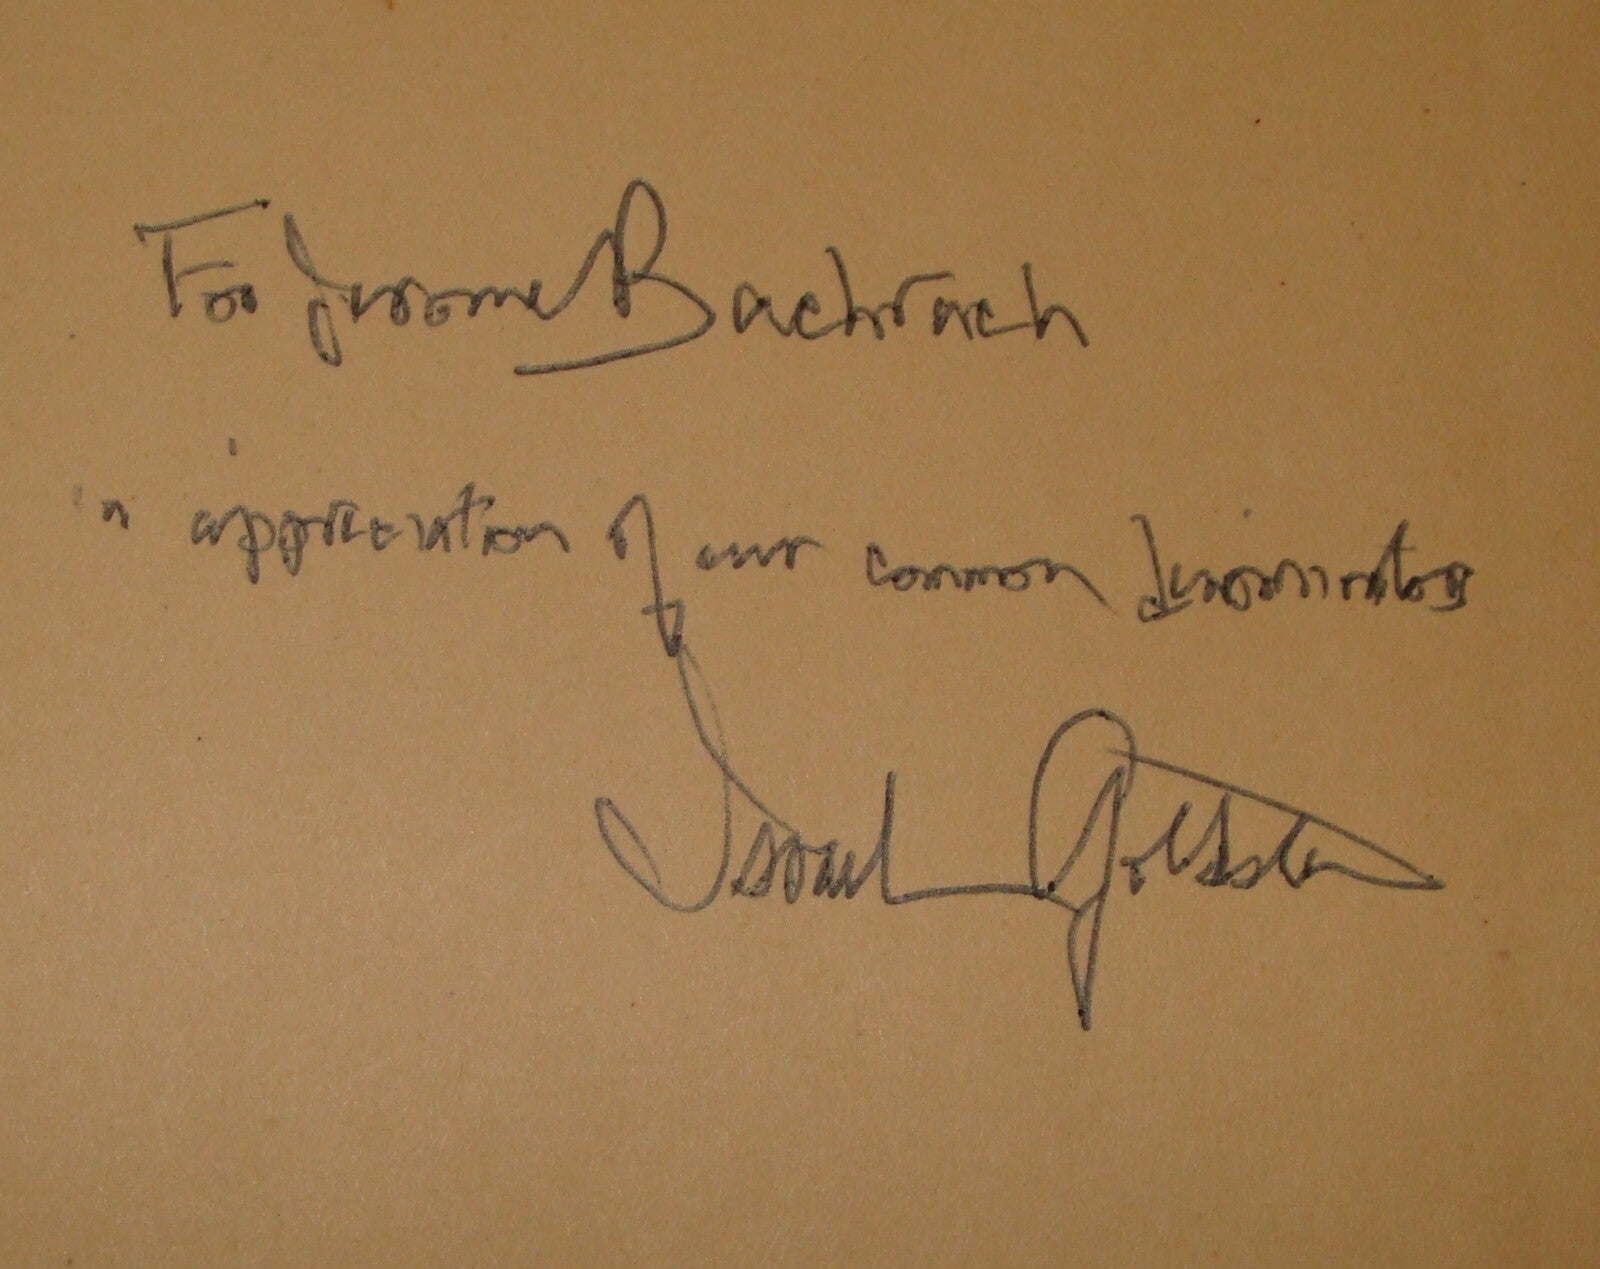 For Jerome Bachrach
in appreciation of our common denominators
Israel Goldstein